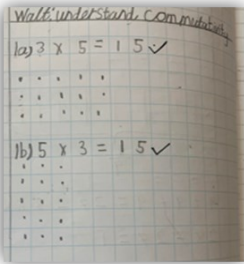 Walt: understand commutativity
1a) 3 x 5 = 15 ✓
1b) 5 x 3 = 15 ✓